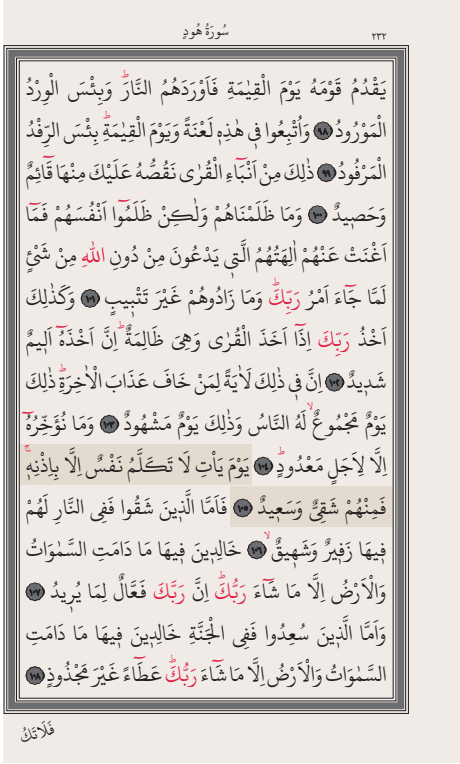 سُورَةُ هُودٍ ٢٣٢
يَقْدُمُ قَوْمَهُ يَوْمَ الْقِيٰمَةِ فَاَوْرَدَهُمُ النَّارَۜ وَبِئْسَ الْوِرْدُ
الْمَوْرُودُ ﴿٩٨﴾ وَاُتْبِعُوا فٖى هٰذِهٖ لَعْنَةً وَيَوْمَ الْقِيٰمَةِۜ بِئْسَ الرِّفْدُ
الْمَرْفُودُ ﴿٩٩﴾ ذٰلِكَ مِنْ اَنْبَٓاءِ الْقُرٰى نَقُصُّهُ عَلَيْكَ مِنْهَا قَٓائِمٌ
وَحَصٖيدٌ ﴿١٠٠﴾ وَمَا ظَلَمْنَاهُمْ وَلٰكِنْ ظَلَمُٓوا اَنْفُسَهُمْ فَمَٓا
اَغْنَتْ عَنْهُمْ اٰلِهَتُهُمُ الَّتٖى يَدْعُونَ مِنْ دُونِ اللّٰهِ مِنْ شَىْءٍ
لَمَّا جَٓاءَ اَمْرُ رَبِّكَۜ وَمَا زَادُوهُمْ غَيْرَ تَتْبٖيبٍ ﴿١٠١﴾ وَكَذٰلِكَ
اَخْذُ رَبِّكَ اِذَٓا اَخَذَ الْقُرٰى وَهِىَ ظَالِمَةٌۜ اِنَّ اَخْذَهُٓ اَلٖيمٌ
شَدٖيدٌ ﴿١٠٢﴾ اِنَّ فٖى ذٰلِكَ لَاٰيَةً لِمَنْ خَافَ عَذَابَ الْاٰخِرَةِۜ ذٰلِكَ
يَوْمٌ مَجْمُوعٌۙ لَهُ النَّاسُ وَذٰلِكَ يَوْمٌ مَشْهُودٌ ﴿١٠٣﴾ وَمَا نُؤَخِّرُهُٓ
اِلَّا لِاَجَلٍ مَعْدُودٍۜ ﴿١٠٤﴾ يَوْمَ يَاْتِ لَا تَكَلَّمُ نَفْسٌ اِلَّا بِاِذْنِهٖۚ
فَمِنْهُمْ شَقِىٌّ وَسَعٖيدٌ ﴿١٠٥﴾ فَاَمَّا الَّذٖينَ شَقُوا فَفِى النَّارِ لَهُمْ
فٖيهَا زَفٖيرٌ وَشَهٖيقٌۙ ﴿١٠٦﴾ خَالِدٖينَ فٖيهَا مَا دَامَتِ السَّمٰوَاتُ
وَالْاَرْضُ اِلَّا مَا شَٓاءَ رَبُّكَۜ اِنَّ رَبَّكَ فَعَّالٌ لِمَا يُرٖيدُ ﴿١٠٧﴾
وَاَمَّا الَّذٖينَ سُعِدُوا فَفِى الْجَنَّةِ خَالِدٖينَ فٖيهَا مَا دَامَتِ
السَّمٰوَاتُ وَالْاَرْضُ اِلَّا مَا شَٓاءَ رَبُّكَۜ عَطَٓاءً غَيْرَ مَجْذُوذٍ ﴿١٠٨﴾
فَلَا تَكُ